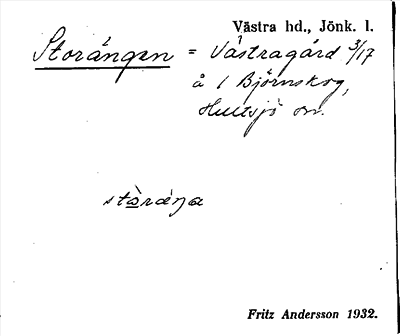 Västra hd., Jönk. l.
Storängen = Västragård 3/17
å 1 Björnskog,
Hultsjö sn.
stàráŋa
Fritz Andersson 1932.